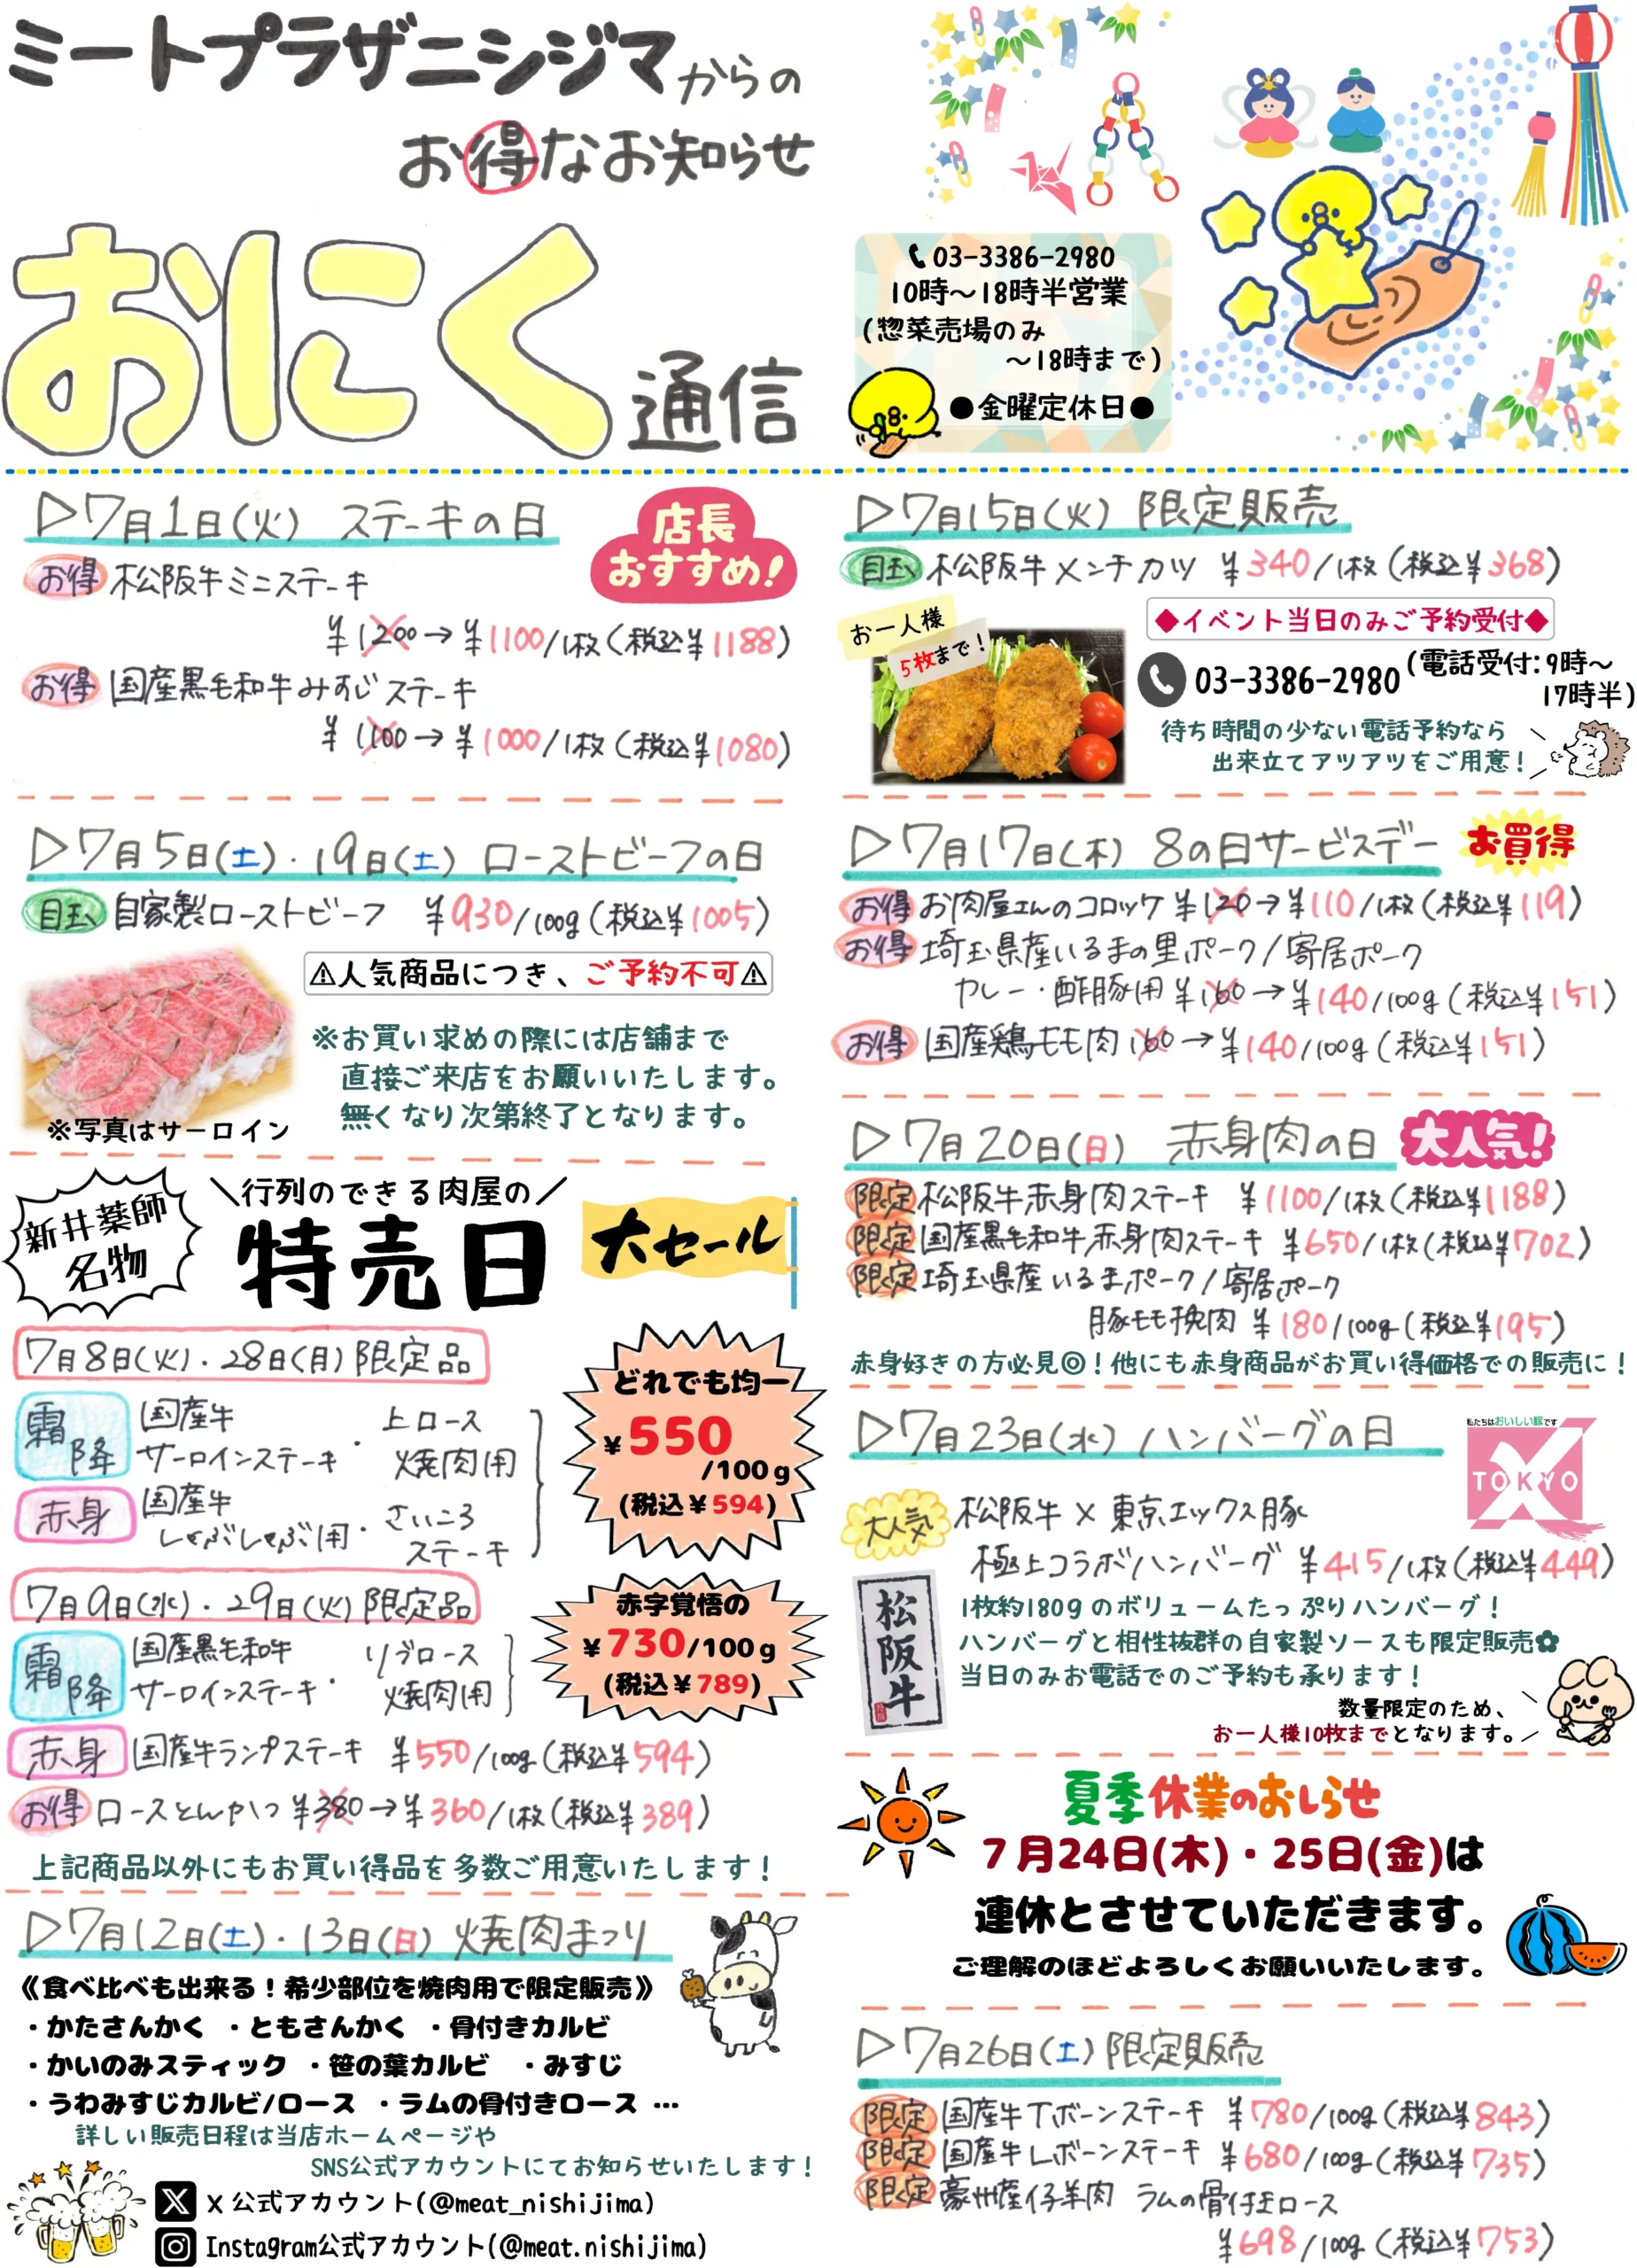 ミートプラザニシジマからの
お得なお知らせ
おにく通信
03-3386-2980
10時～18時半営業
(惣菜売場のみ
～18時まで)
●金曜定休日●
▷7月1日(火) ステーキの日
店長
おすすめ!
お得 松阪牛ミニステーキ
¥1200→¥1100/1枚(税込¥1188)
お得 国産黒毛和牛みすじステーキ
¥1100→¥1000/1枚(税込¥1080)
▷7月5日(土)・19日(土) ローストビーフの日
目玉 自家製ローストビーフ ¥930/100g(税込¥1005)
⚠人気商品につき、ご予約不可⚠
※お買い求めの際には店舗まで
直接ご来店をお願いいたします。
無くなり次第終了となります。
※写真はサーロイン
新井薬師
名物
＼行列のできる肉屋の／
特売日
大セール
7月8日(火)・28日(月)限定品
霜降 国産牛
サーロインステーキ・上ロース
焼肉用
赤身 国産牛
しゃぶしゃぶ用・さいころ
ステーキ
どれでも均一
¥550
/100g
(税込¥594)
7月9日(水)・29日(火)限定品
霜降 国産黒毛和牛
サーロインステーキ・リブロース
焼肉用
赤字覚悟の
¥730/100g
(税込¥789)
赤身 国産牛ランプステーキ ¥550/100g(税込¥594)
お得 ロースとんかつ ¥380→¥360/1枚(税込¥389)
上記商品以外にもお買い得品を多数ご用意いたします！
▷7月12日(土)・13日(日) 焼肉まつり
《食べ比べも出来る！希少部位を焼肉用で限定販売》
・かたさんかく ・ともさんかく ・骨付きカルビ
・かいのみスティック ・笹の葉カルビ ・みすじ
・うわみすじカルビ/ロース ・ラムの骨付きロース …
詳しい販売日程は当店ホームページや
SNS公式アカウントにてお知らせいたします！
X 公式アカウント(@meat_nishijima)
Instagram公式アカウント(@meat.nishijima)
▷7月15日(火) 限定販売
目玉 松阪牛メンチカツ ¥340/1枚(税込¥368)
お一人様
5枚まで！
◆イベント当日のみご予約受付◆
03-3386-2980(電話受付:9時～
17時半)
待ち時間の少ない電話予約なら
出来立てアツアツをご用意！
▷7月17日(木) 8の日サービスデー
お買得
お得 お肉屋さんのコロッケ ¥120→¥110/1枚(税込¥119)
お得 埼玉県産いるまの里ポーク/寄居ポーク
カレー・酢豚用 ¥160→¥140/100g(税込¥151)
お得 国産鶏もも肉 160→¥140/100g(税込¥151)
▷7月20日(日) 赤身肉の日
大人気!
限定 松阪牛赤身肉ステーキ ¥1100/1枚(税込¥1188)
限定 国産黒毛和牛赤身肉ステーキ ¥650/1枚(税込¥702)
限定 埼玉県産いるまポーク/寄居ポーク
豚もも挽肉 ¥180/100g(税込¥195)
赤身好きの方必見◎！他にも赤身商品がお買い得価格での販売に！
▷7月23日(水) ハンバーグの日
私たちはおいしい豚です
TOKYO X
大人気 松阪牛×東京エックス豚
極上コラボハンバーグ ¥415/1枚(税込¥449)
松阪牛
1枚約180gのボリュームたっぷりハンバーグ！
ハンバーグと相性抜群の自家製ソースも限定販売✿
当日のみお電話でのご予約も承ります！
数量限定のため、
お一人様10枚までとなります。
夏季休業のおしらせ
7月24日(木)・25日(金)は
連休とさせていただきます。
ご理解のほどよろしくお願いいたします。
▷7月26日(土)限定販売
限定 国産牛Tボーンステーキ ¥780/100g(税込¥843)
限定 国産牛Lボーンステーキ ¥680/100g(税込¥735)
限定 豪州産仔羊肉 ラムの骨付きロース
¥698/100g(税込¥753)